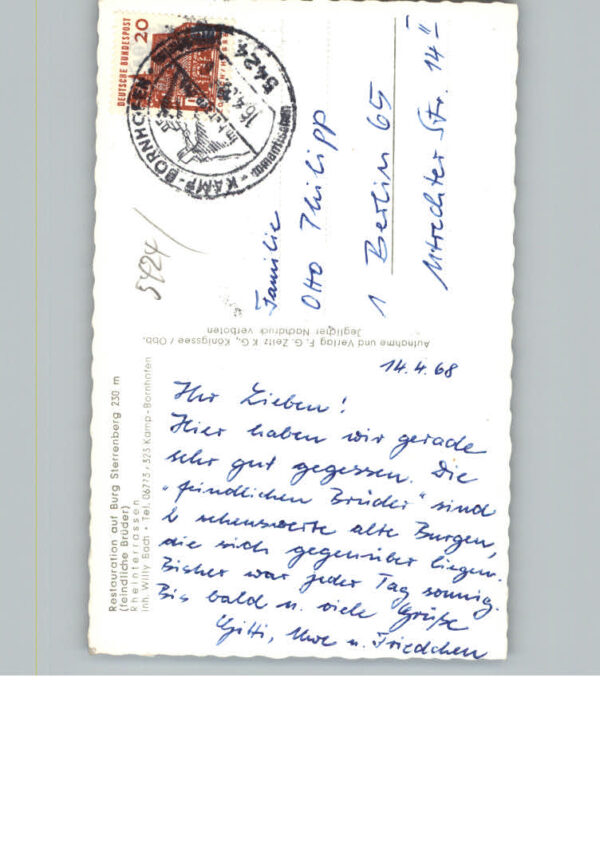 DEUTSCHE BUNDESPOST
20
5424
KAMP-BORNHOFEN
16.4.68
romantischen
5424
Familie
Otto Philipp
1 Berlin 65
Utrechter Str. 14 II
Aufnahme und Verlag F. G. Zeitz KG., Königssee / Obb.
Jeglicher Nachdruck verboten
Restauration auf Burg Sterrenberg 230 m
(feindliche Brüder)
Rheinterrassen
Inh. Willy Bach · Tel. 06773 / 323 Kamp-Bornhofen
14.4.68
Ihr Lieben!
Hier haben wir gerade
sehr gut gegessen. Die
"feindlichen Brüder" sind
2 sehenswerte alte Burgen,
die sich gegenüber liegen.
Bisher war jeder Tag sonnig.
Bis bald u. viele Grüße
Gitti, Uwe u. Friedchen